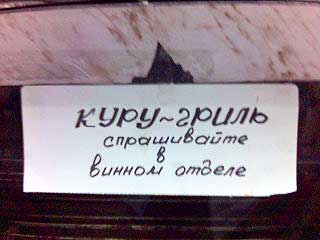 КУРУ~ГРИЛЬ
спрашивайте
в
винном отделе